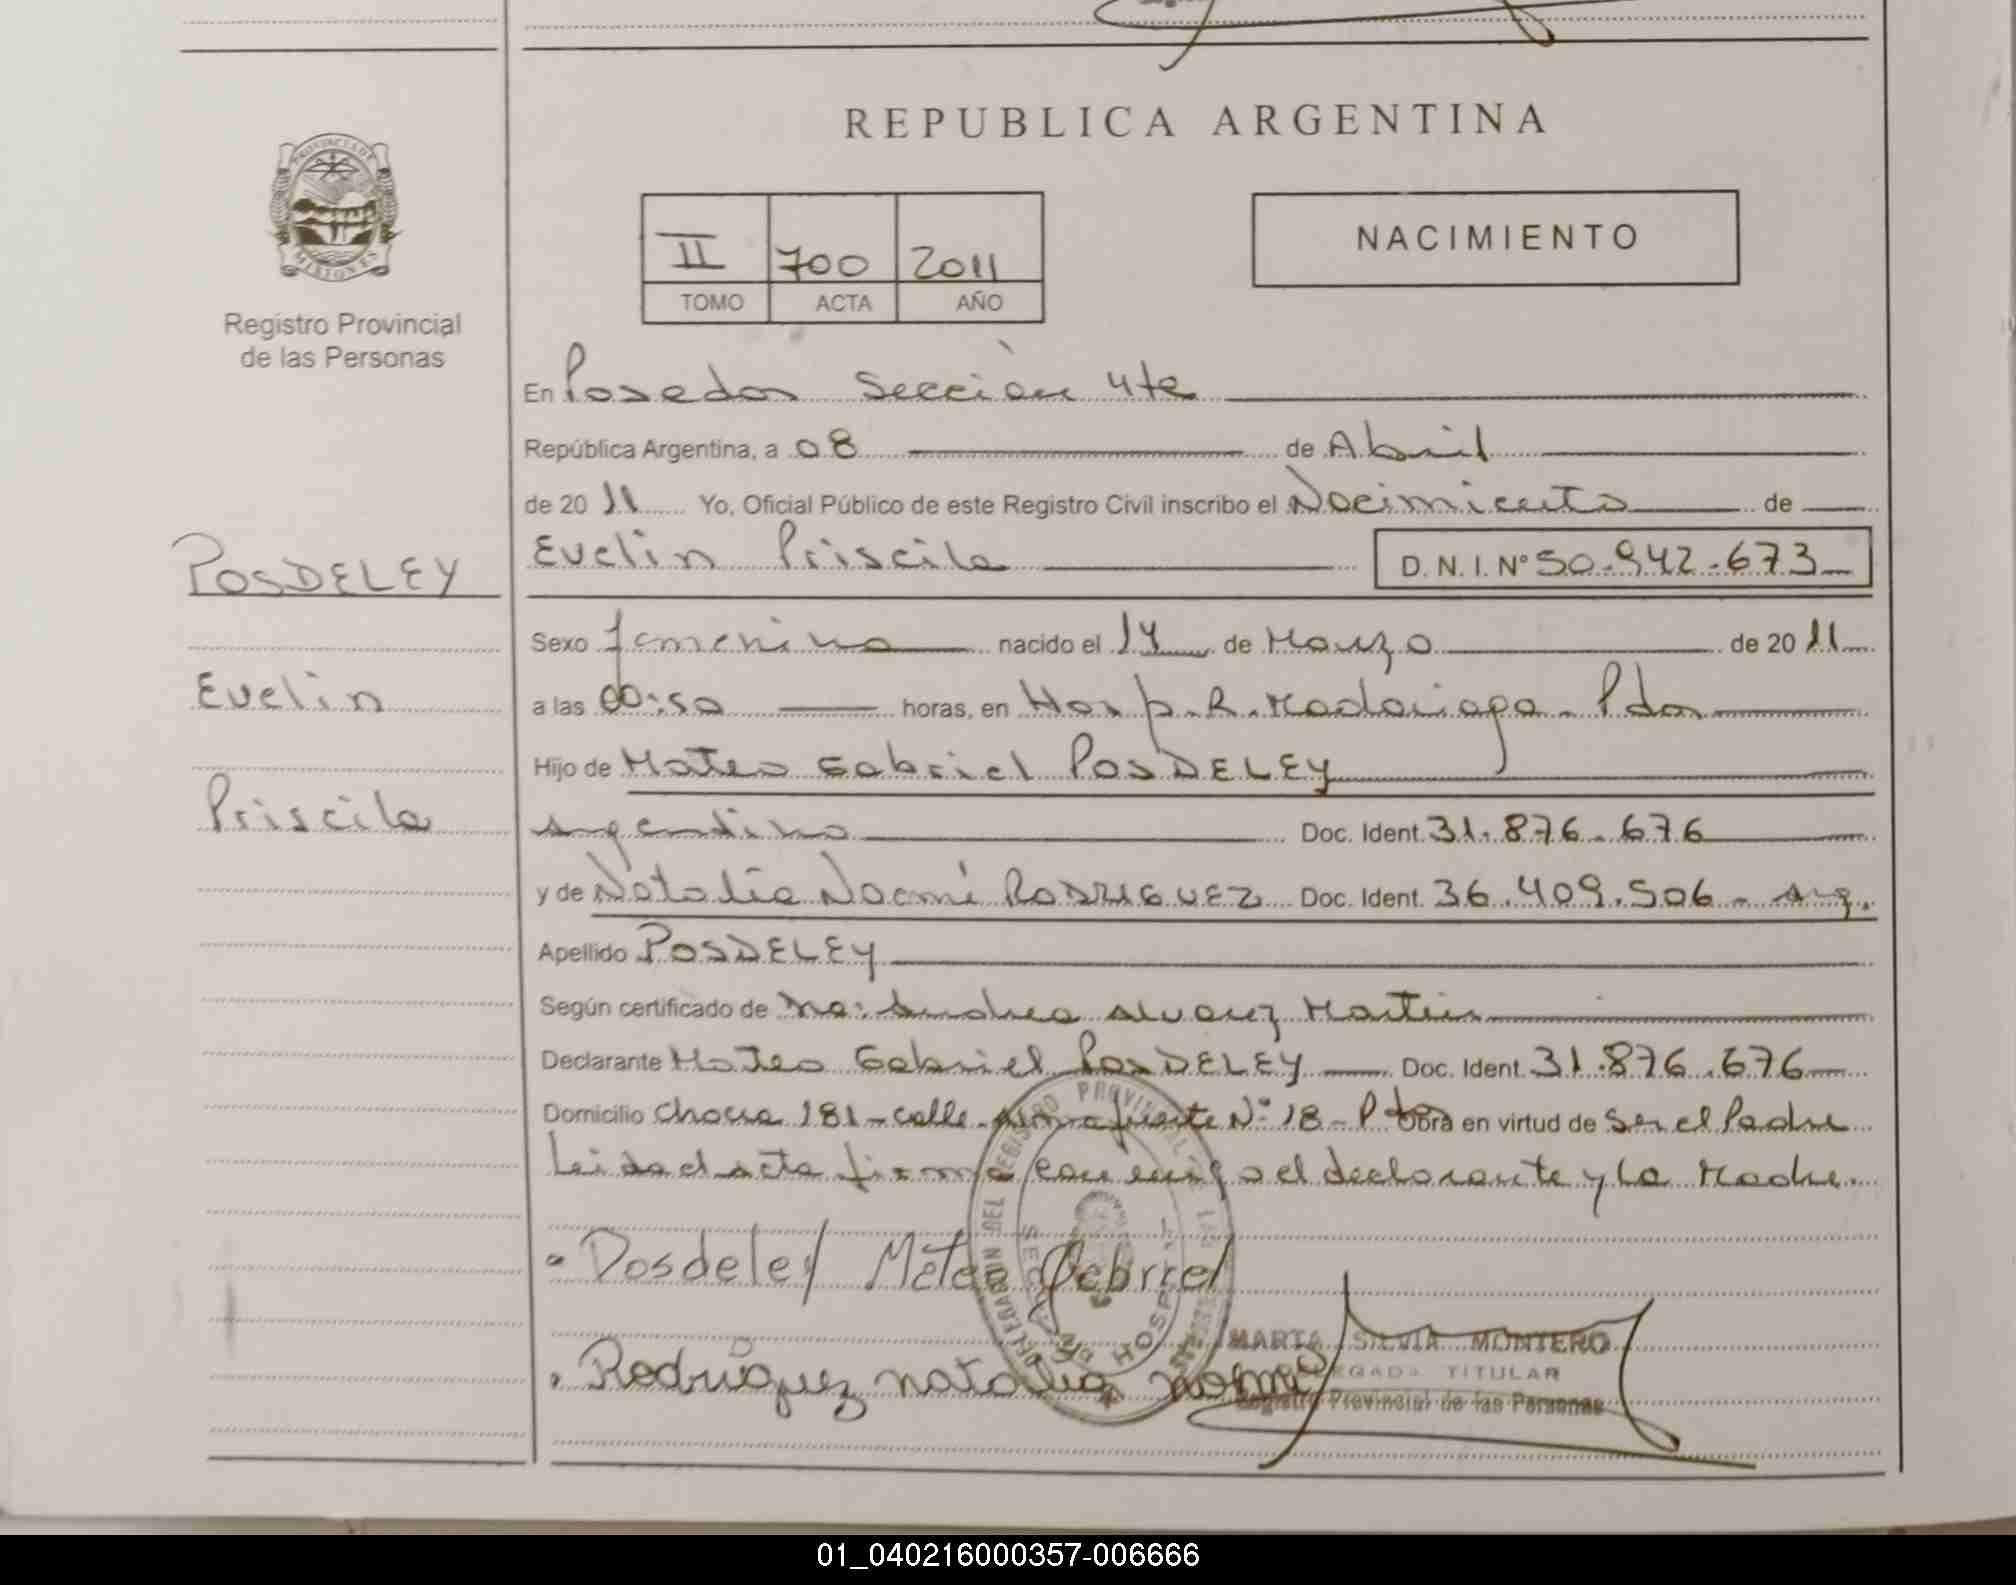 REPUBLICA ARGENTINA
PROVINCIA DE MISIONES
Registro Provincial
de las Personas
II 700 2011
TOMO ACTA AÑO
NACIMIENTO
En Posadas Sección 4ta
República Argentina, a 08 de Abril
de 20 11 Yo, Oficial Público de este Registro Civil inscribo el Nacimiento de
POSDELEY
Evelin Priscila D.N.I. Nº 50.942.673
Sexo femenino nacido el 14 de Marzo de 20 11
Evelin
a las 00:50 horas, en Hosp. R. Madariaga - Pdas
Hijo de Mateo Gabriel POSDELEY
Priscila
argentino Doc. Ident. 31.876.676
y de Natalia Noemí RODRIGUEZ Doc. Ident. 36.409.506 - arg.
Apellido POSDELEY
Según certificado de Andrea Alvarez Martin
Declarante Mateo Gabriel POSDELEY Doc. Ident. 31.876.676
Domicilio Chacra 181 - calle Almafuerte Nº 18 - Pdas Obra en virtud de ser el Padre
Leida el acta firma conmigo el declarante y la Madre.
Posdeley Mateo Gabriel
MARTA SILVIA MONTERO
DELEGADA TITULAR
Rodriguez natalia
Registro Provincial de las Personas
01_040216000357-006666